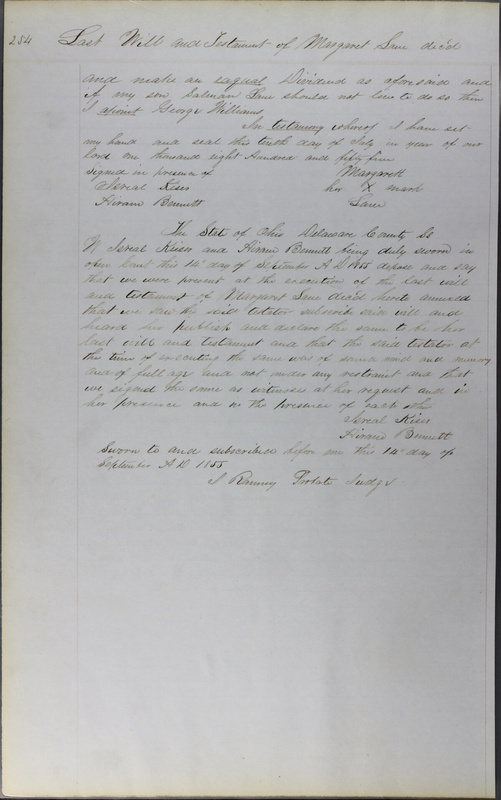 254 Last Will and Testament of Margaret Lane dec'd
and make an eaqual Dividend as aforesaid and
if my son Salman Lane should not live to do so then
I apoint George Williams
In testamony whereof I have set
my hand and seal this tenth day of July in year of our
lord one thousand eight Hundred and fifty five
Signed in presence of Margarett
Isreal Kiser her X mark
Hiram Bennett Lane
The State of Ohio Delaware County Ss
We Isreal Kiser and Hiram Bennett being duly sworn in
open Court this 14th day of September A D 1855 depose and say
that we were present at the execution of the last will
and testament of Margaret Lane dec'd hereto annexed
that we saw the said testator subscribe said will and
heard her publish and declare the same to be her
last will and testament and that the said testator at
the time of executing the same was of sound mind and memory
and of full age and not under any restraint and that
we signed the same as witnesses at her request and in
her presence and in the presence of each other
Isreal Kiser
Hiram Bennett
Sworn to and subscribed before me this 14th day of
September A D 1855
Ranney Probate Judge